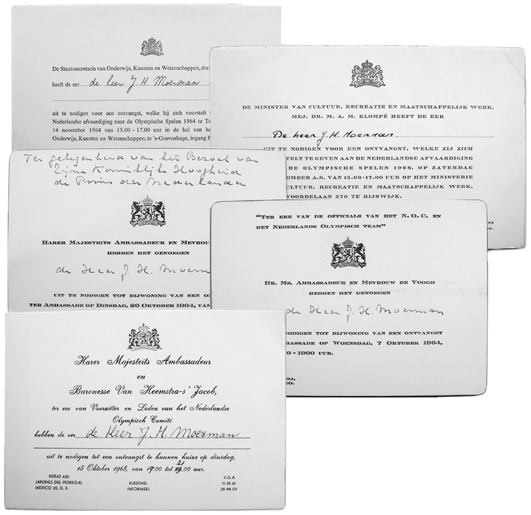 De Staatssecretaris van Onderwijs, Kunsten en Wetenschappen, dra
heeft de eer de heer J. H. Moerman
uit te nodigen voor een ontvangst, welke hij zich voorstelt
Nederlandse afvaardiging naar de Olympische Spelen 1964 te
14 november 1964 van 15.00 - 17.00 uur in de hal van he
Onderwijs, Kunsten en Wetenschappen, te 's-Gravenhage, ingang
DE MINISTER VAN CULTUUR, RECREATIE EN MAATSCHAPPELIJK WERK,
MEJ. DR. M. A. M. KLOMPÉ HEEFT DE EER
De heer J. H. Moerman
UIT TE NODIGEN VOOR EEN ONTVANGST, WELKE ZIJ ZICH
STELT TE GEVEN AAN DE NEDERLANDSE AFVAARDIGING
DE OLYMPISCHE SPELEN 1968, OP ZATERDAG
EMBER A.S. VAN 15.00-17.00 UUR OP HET MINISTERIE
ULTUUR, RECREATIE EN MAATSCHAPPELIJK WERK,
VOORDELAAN 370 TE RIJSWIJK.
Ter gelegenheid van het Bezoek van
Zijne Koninklijke Hoogheid
de Prins der Nederlanden
HARER MAJESTEITS AMBASSADEUR EN MEVROUW
HEBBEN HET GENOEGEN
de Heer J. H. Moerman
UIT TE NODIGEN TOT BIJWONING VAN EEN O
TER AMBASSADE OP DINSDAG, 20 OKTOBER 1964, VAN
"TER ERE VAN DE OFFICIALS VAN HET N.O.C. EN
HET NEDERLANDS OLYMPISCH TEAM"
HR. MS. AMBASSADEUR EN MEVROUW DE VOOGD
HEBBEN HET GENOEGEN
de Heer J. H. Moerman
NODIGEN TOT BIJWONING VAN EEN ONTVANGST
BASSADE OP WOENSDAG, 7 OKTOBER 1964,
0 - 1900 UUR.
Harer Majesteits Ambassadeur
en
Baronesse Van Heemstra-s' Jacob,
ter ere van Voorzitter en Leden van het Nederlandse
Olympisch Comité
hebben de eer de Heer J. H. Moerman
uit te nodigen tot een ontvangst te hunnen huize op dinsdag,
15 Oktober 1968, van 19.00 tot 21.00 uur.
PEÑAS 450
JARDINES DEL PEDREGAL
MEXICO 20, D. F.
KLEDING:
INFORMEEL
V.G.A.